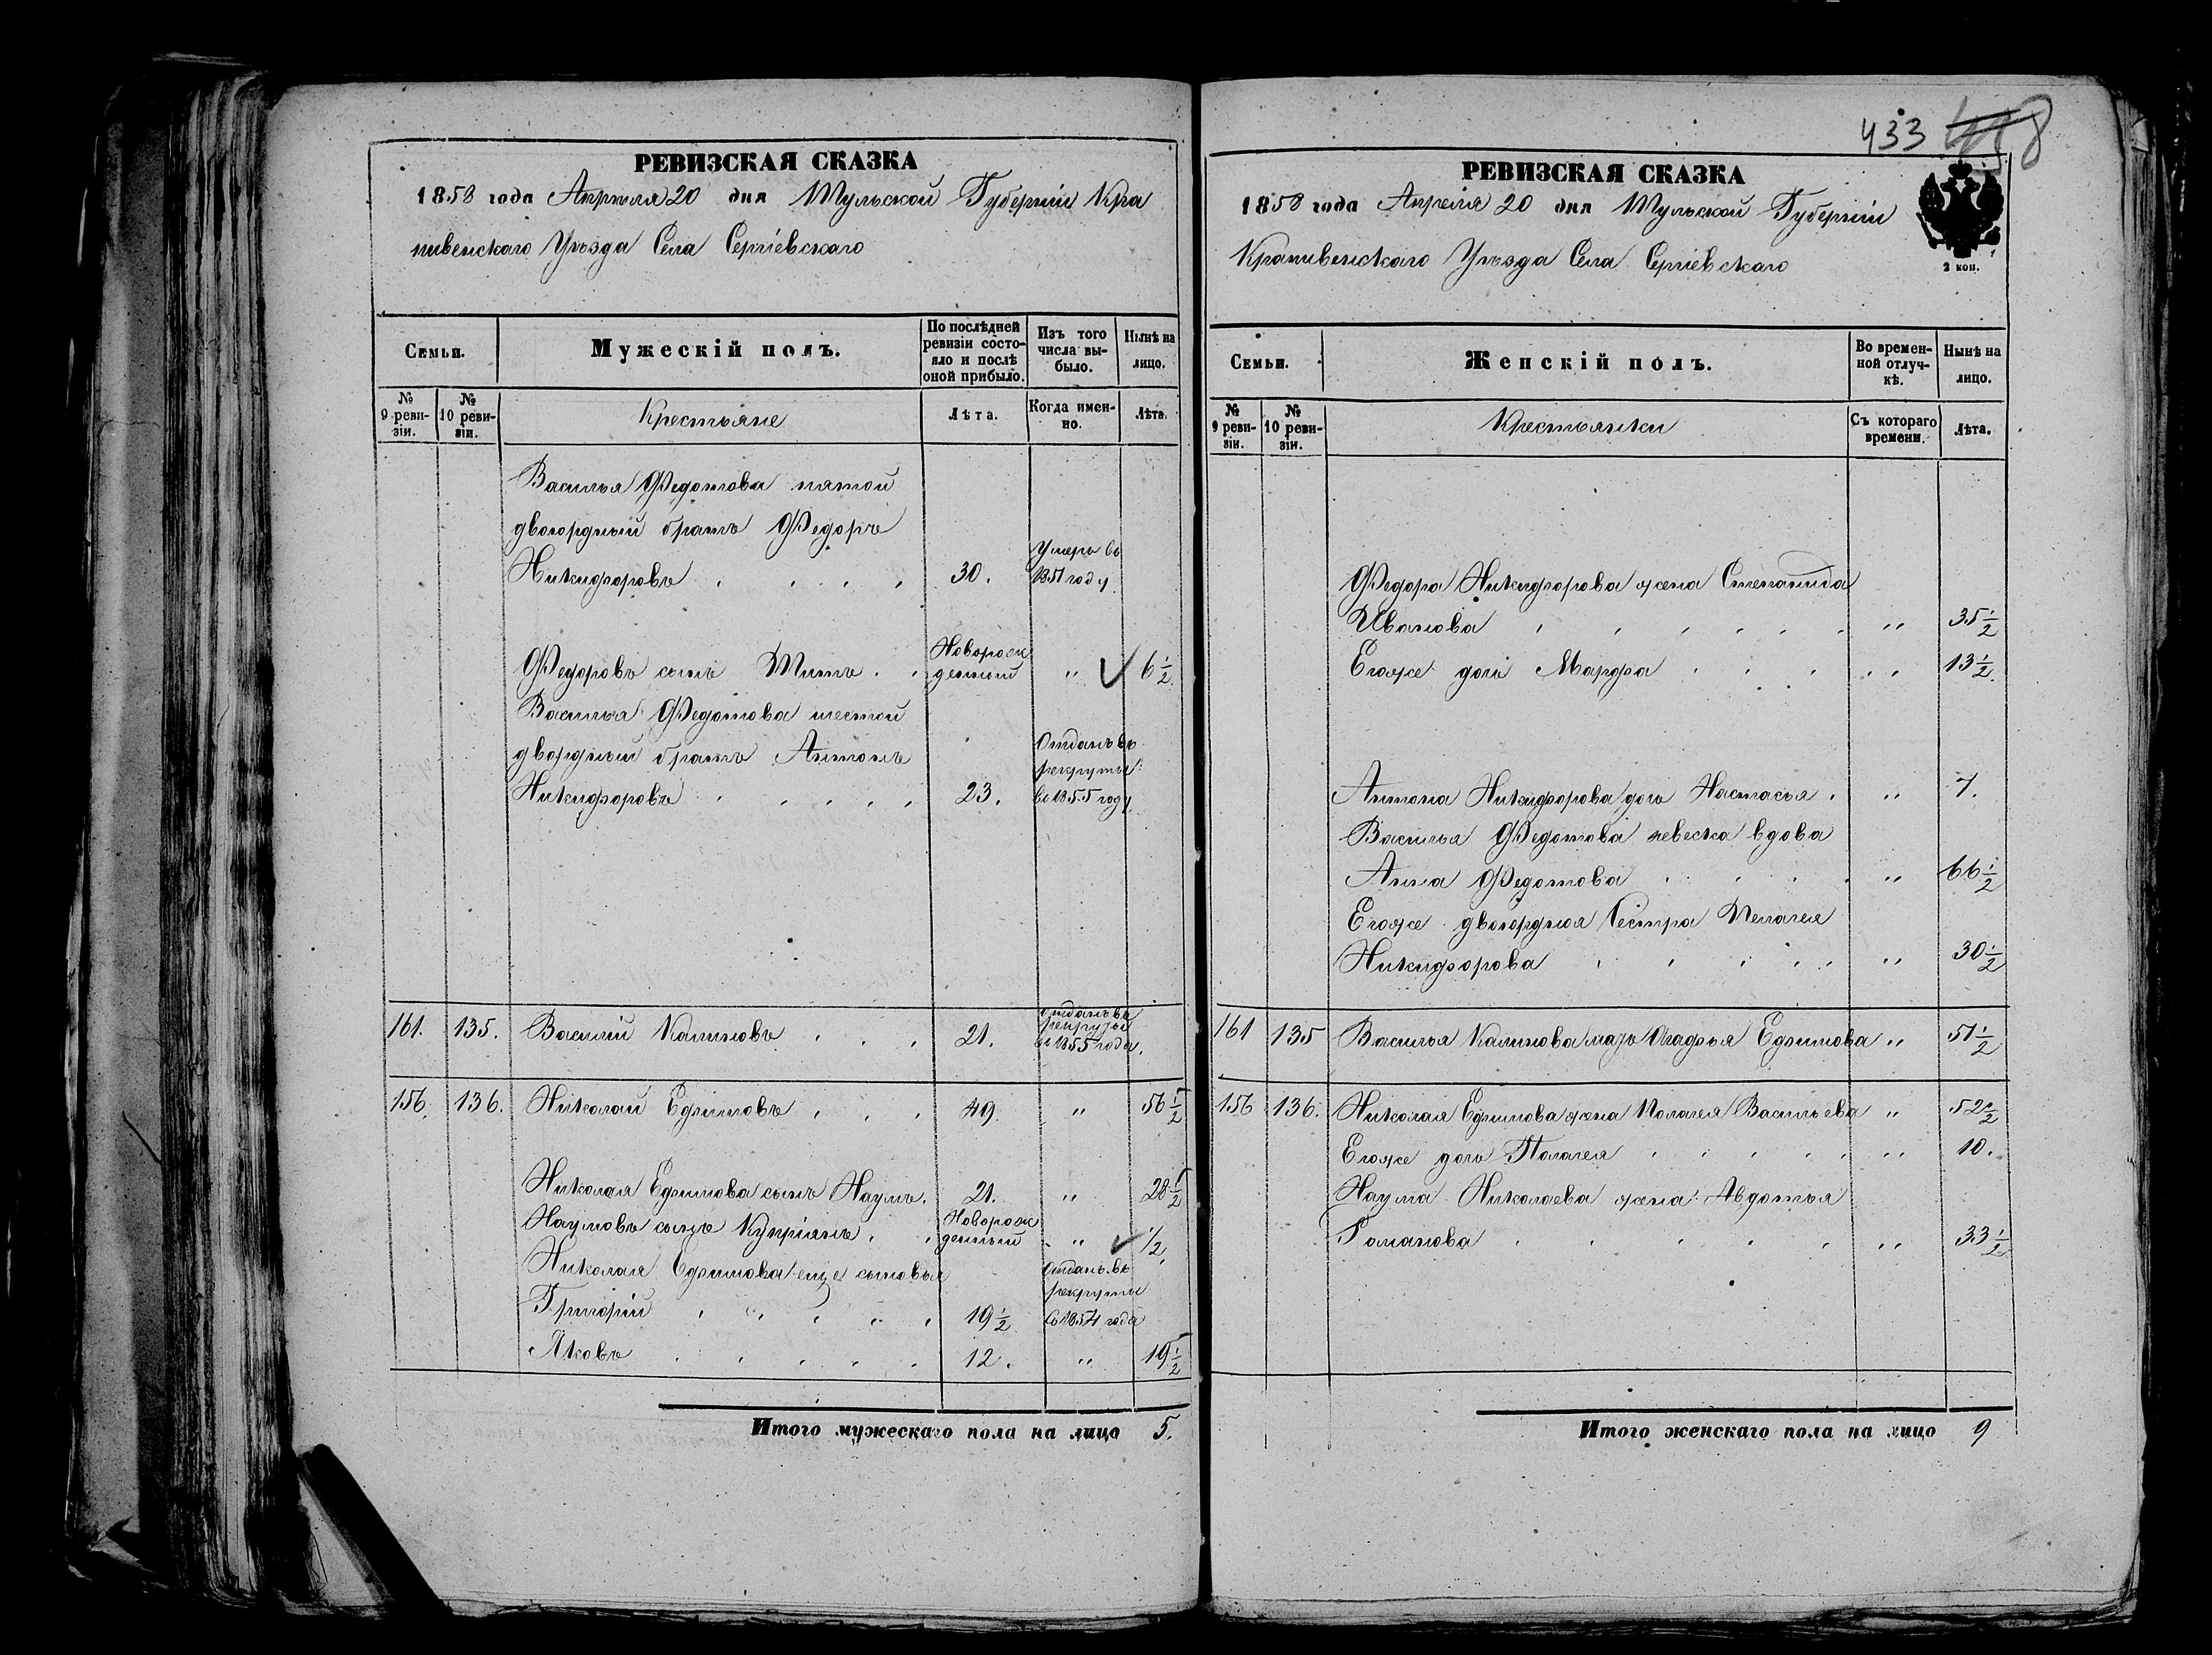 РЕВИЗСКАЯ СКАЗКА
1858 года Апреля 20 дня Тульской Губерніи Кра
пивенскаго Уѣзда Села Сергіевскаго
Семьи.
Мужескій полъ.
По послѣдней ревизіи состояло и послѣ оной прибыло.
Изъ того числа выбыло.
Нынѣ на лицо.
№ 9 ревизіи.
№ 10 ревизіи.
Крестьяне
Лѣта.
Когда именно.
Лѣта.
Василья Федотова пятой
двоюрдный братъ Федоръ
Никифоровъ 30. Умеръ въ 1851 году
Федоровъ сынъ Титъ Новорожденный " 6 ½
Василья Федотова шестой
двоюрдный братъ Антонъ
Никифоровъ 23. Отданъ въ рекруты въ 1855 году
161. 135. Василий Калиновъ 21. отданъ въ рекруты въ 1855 года.
156. 136. Николай Ефимовъ 49. " 56 ½
Николая Ефимова сынъ Наумъ. 21. " 28 ½
Наумовъ сынъ Купріянъ Новорожденный " ½
Николая Ефимова еще сыновья
Григорій 19 ½ отданъ въ рекруты въ 1854 года
Яковъ 12. " 19 ½
Итого мужескаго пола на лицо 5.
433
РЕВИЗСКАЯ СКАЗКА
1858 года Апреля 20 дня Тульской Губерніи
Крапивенскаго Уѣзда Села Сергіевскаго
2 коп.
Семьи.
Женскій полъ.
Во временной отлучкѣ.
Нынѣ на лицо.
№ 9 ревизіи.
№ 10 ревизіи.
Крестьянки
Съ котораго времени.
Лѣта.
Федора Никифорова жена Степанида
Иванова " 35 ½
Егоже дочь Марфа " 13 ½
Антона Никифорова дочь Настасья " 7.
Василья Федотова невеска вдова
Анна Федотова " 66 ½
Егоже двоюрдная сестра Пелагея
Никифорова " 30 ½
161 135 Василья Калинова мать Агафья Ефимова " 51 ½
156 136. Николая Ефимова жена Полагея Васильева " 52 ½
Егоже дочь Полагея " 10.
Наума Николаева жена Авдотья
Романова " 33 ½
Итого женскаго пола на лицо 9